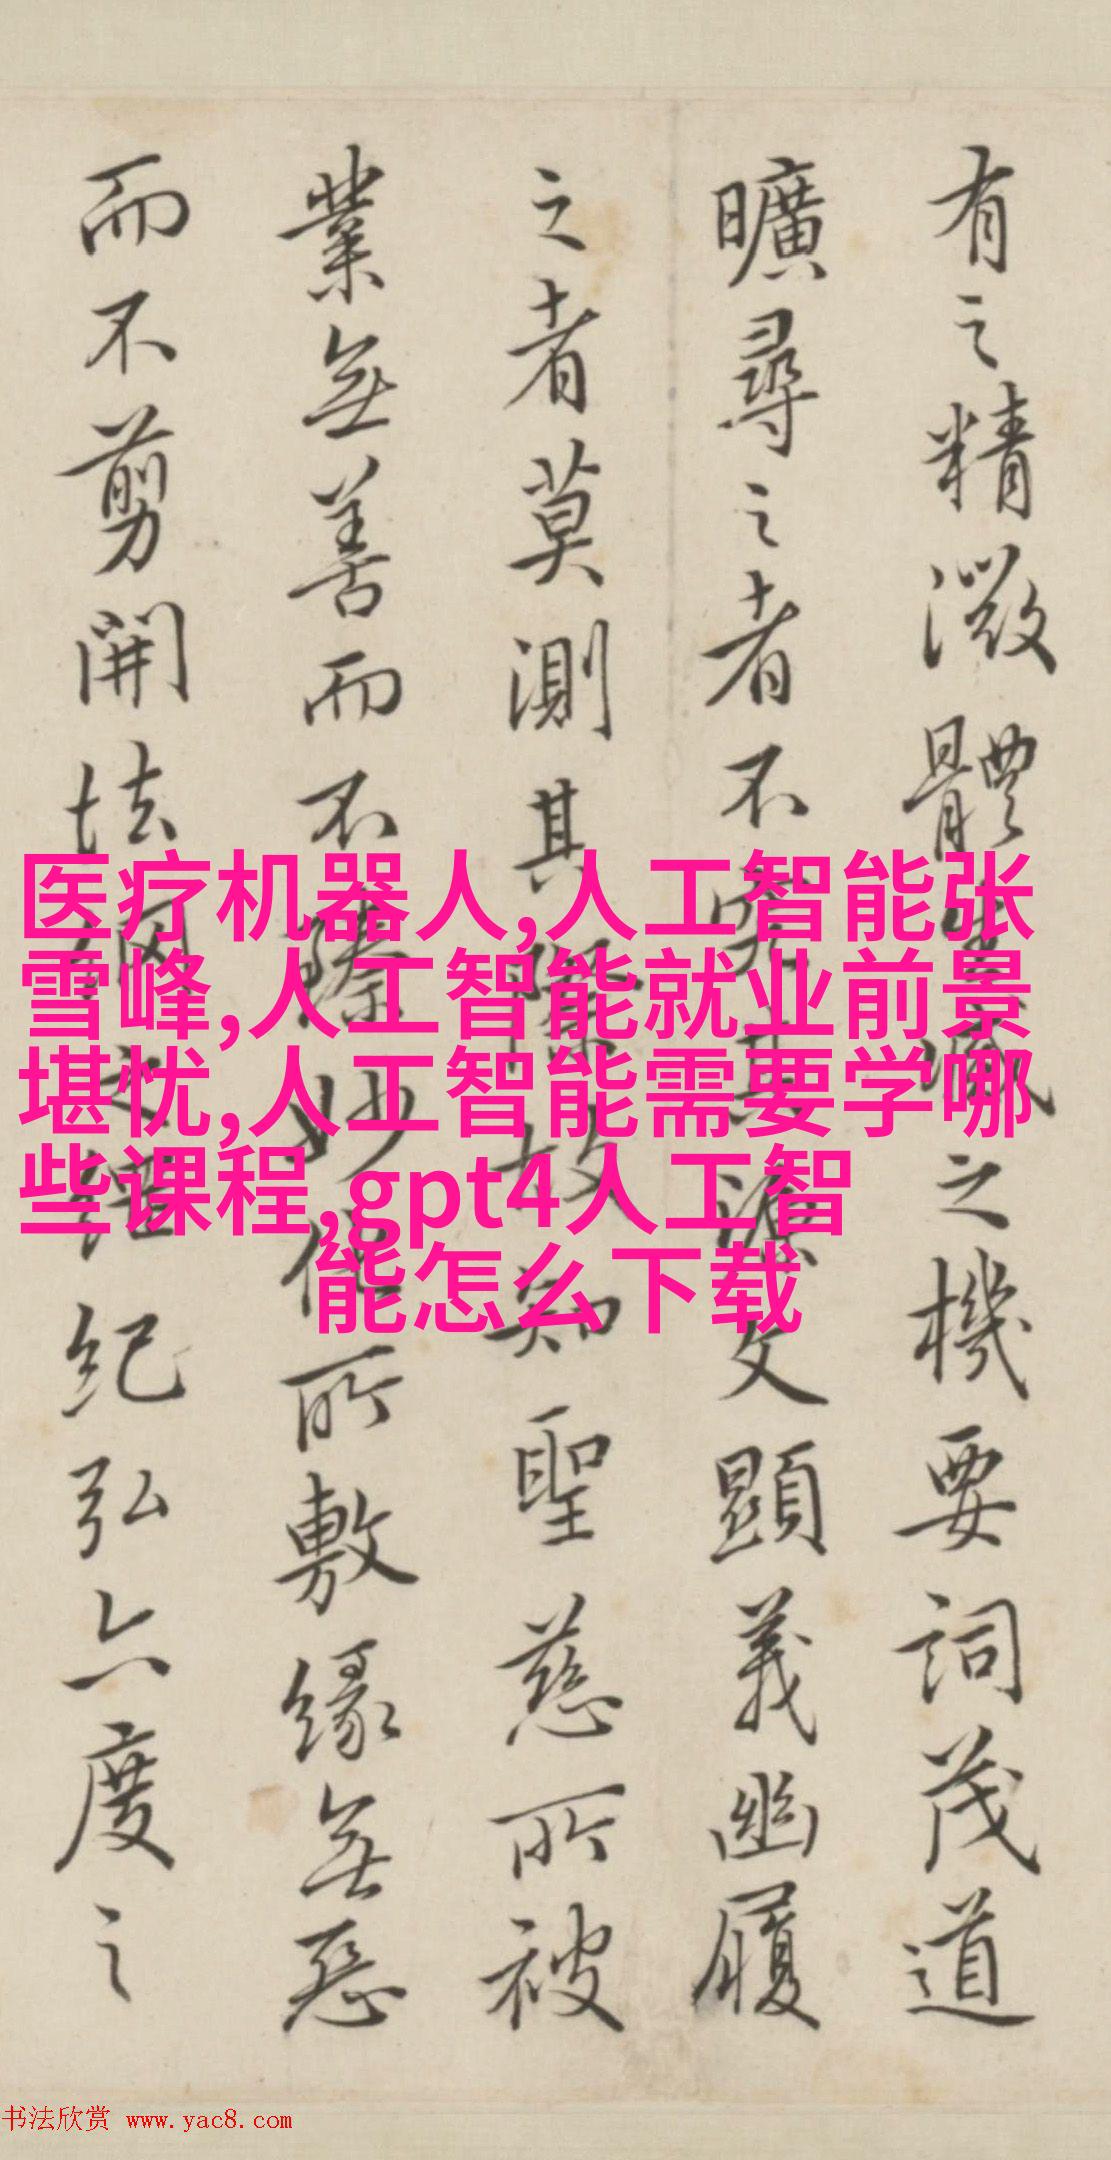 有之精微體生滅之機要詞茂道
曠尋之者不究其源文顯義幽履
之者莫測其際故知聖慈所被
業無善而不臻妙化所敷緣無惡
而不剪開法網之綱紀弘六度之
医疗机器人,人工智能张
雪峰,人工智能就业前景
堪忧,人工智能需要学哪
些课程,gpt4人工智
能怎么下载
书法欣赏 www.yac8.com